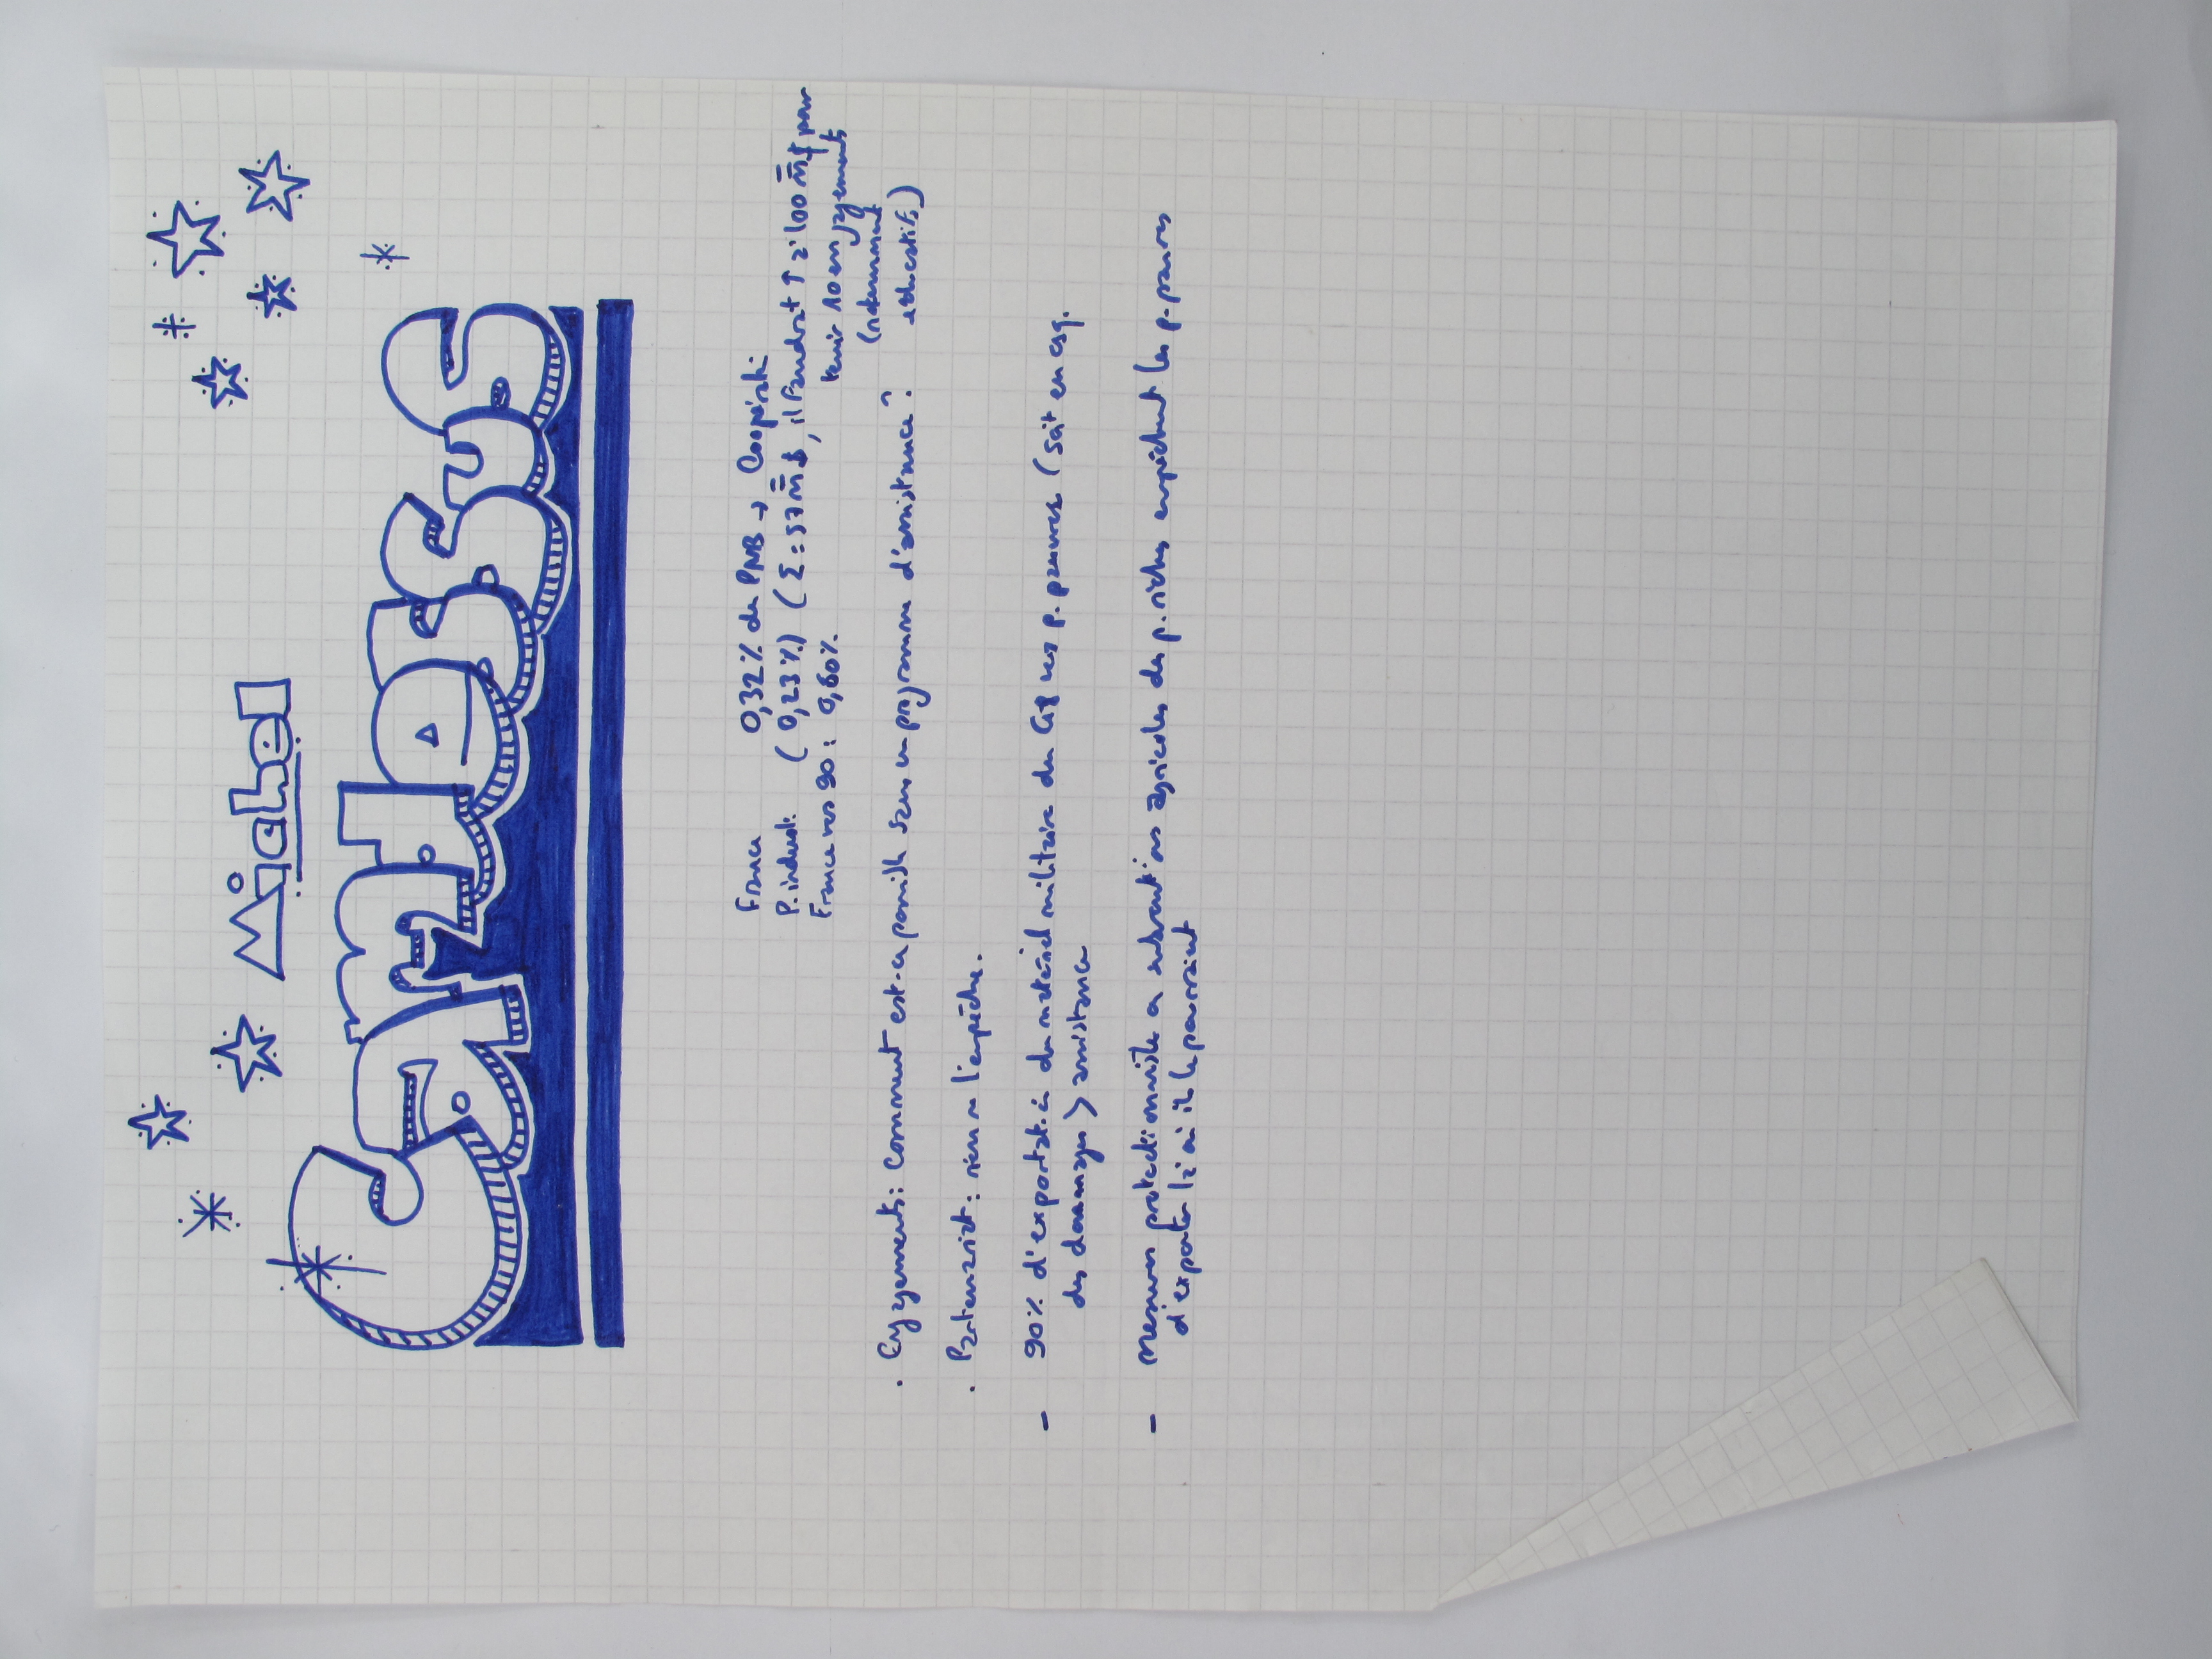 Michel
Camdessus
France 0,32% du PNB → Coopérat:
P. indust. (0,23%) (Σ: 57 M$, il faudrat ↑ à 100 M$ pour
France vers 90: 0,60% tenir 10 engagements
(notamment
éducatifs)
. Engagements: comment est-ce possible sans un programme d'assistance?
. Partenariat: rien n l'empêche.
- 90% d'exportat° du matériel militaire du G8 vers p. pauvres (sait en
des dommages > assistance
- Mesures protectionniste et subvent°ns agricoles des p. riches empêchent les p. pauvres
d'exporter là où ils le pourraient